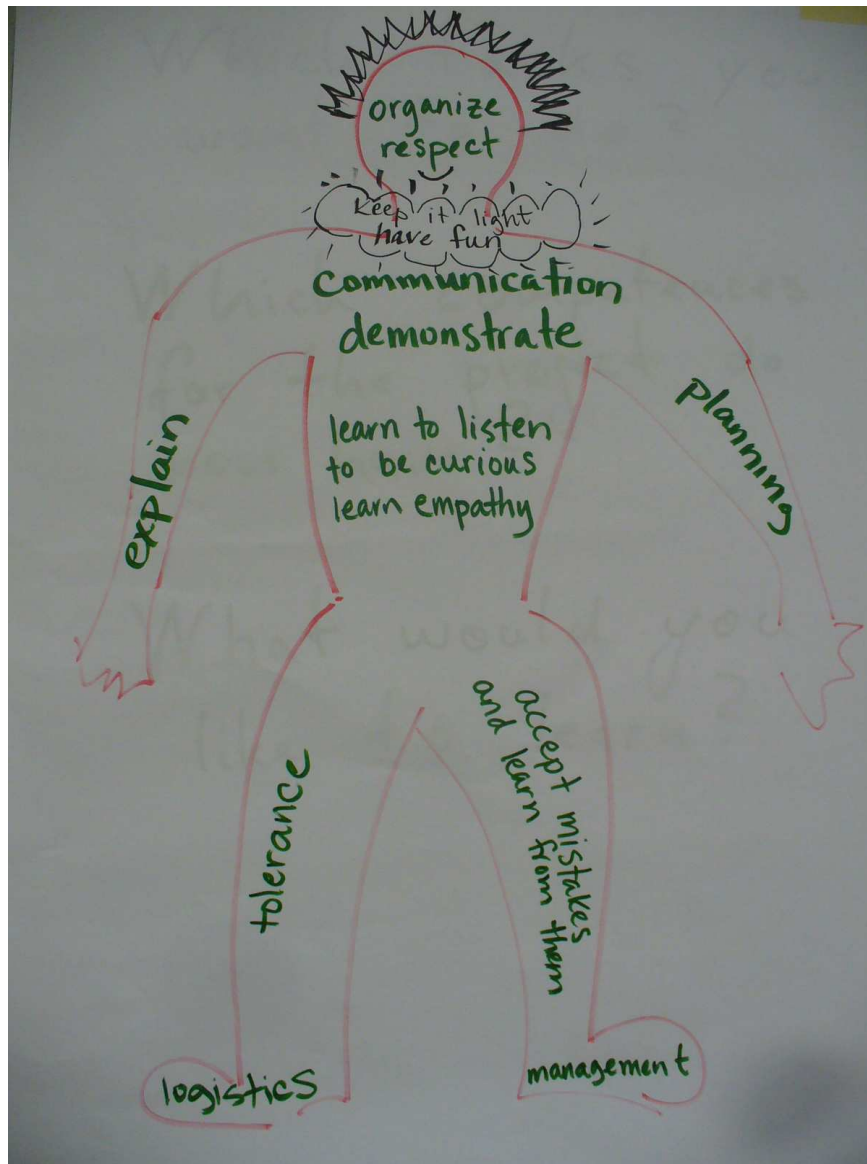 organize
respect
keep it light
have fun
communication
demonstrate
explain
planning
learn to listen
to be curious
learn empathy
tolerance
accept mistakes
and learn from them
logistics
management